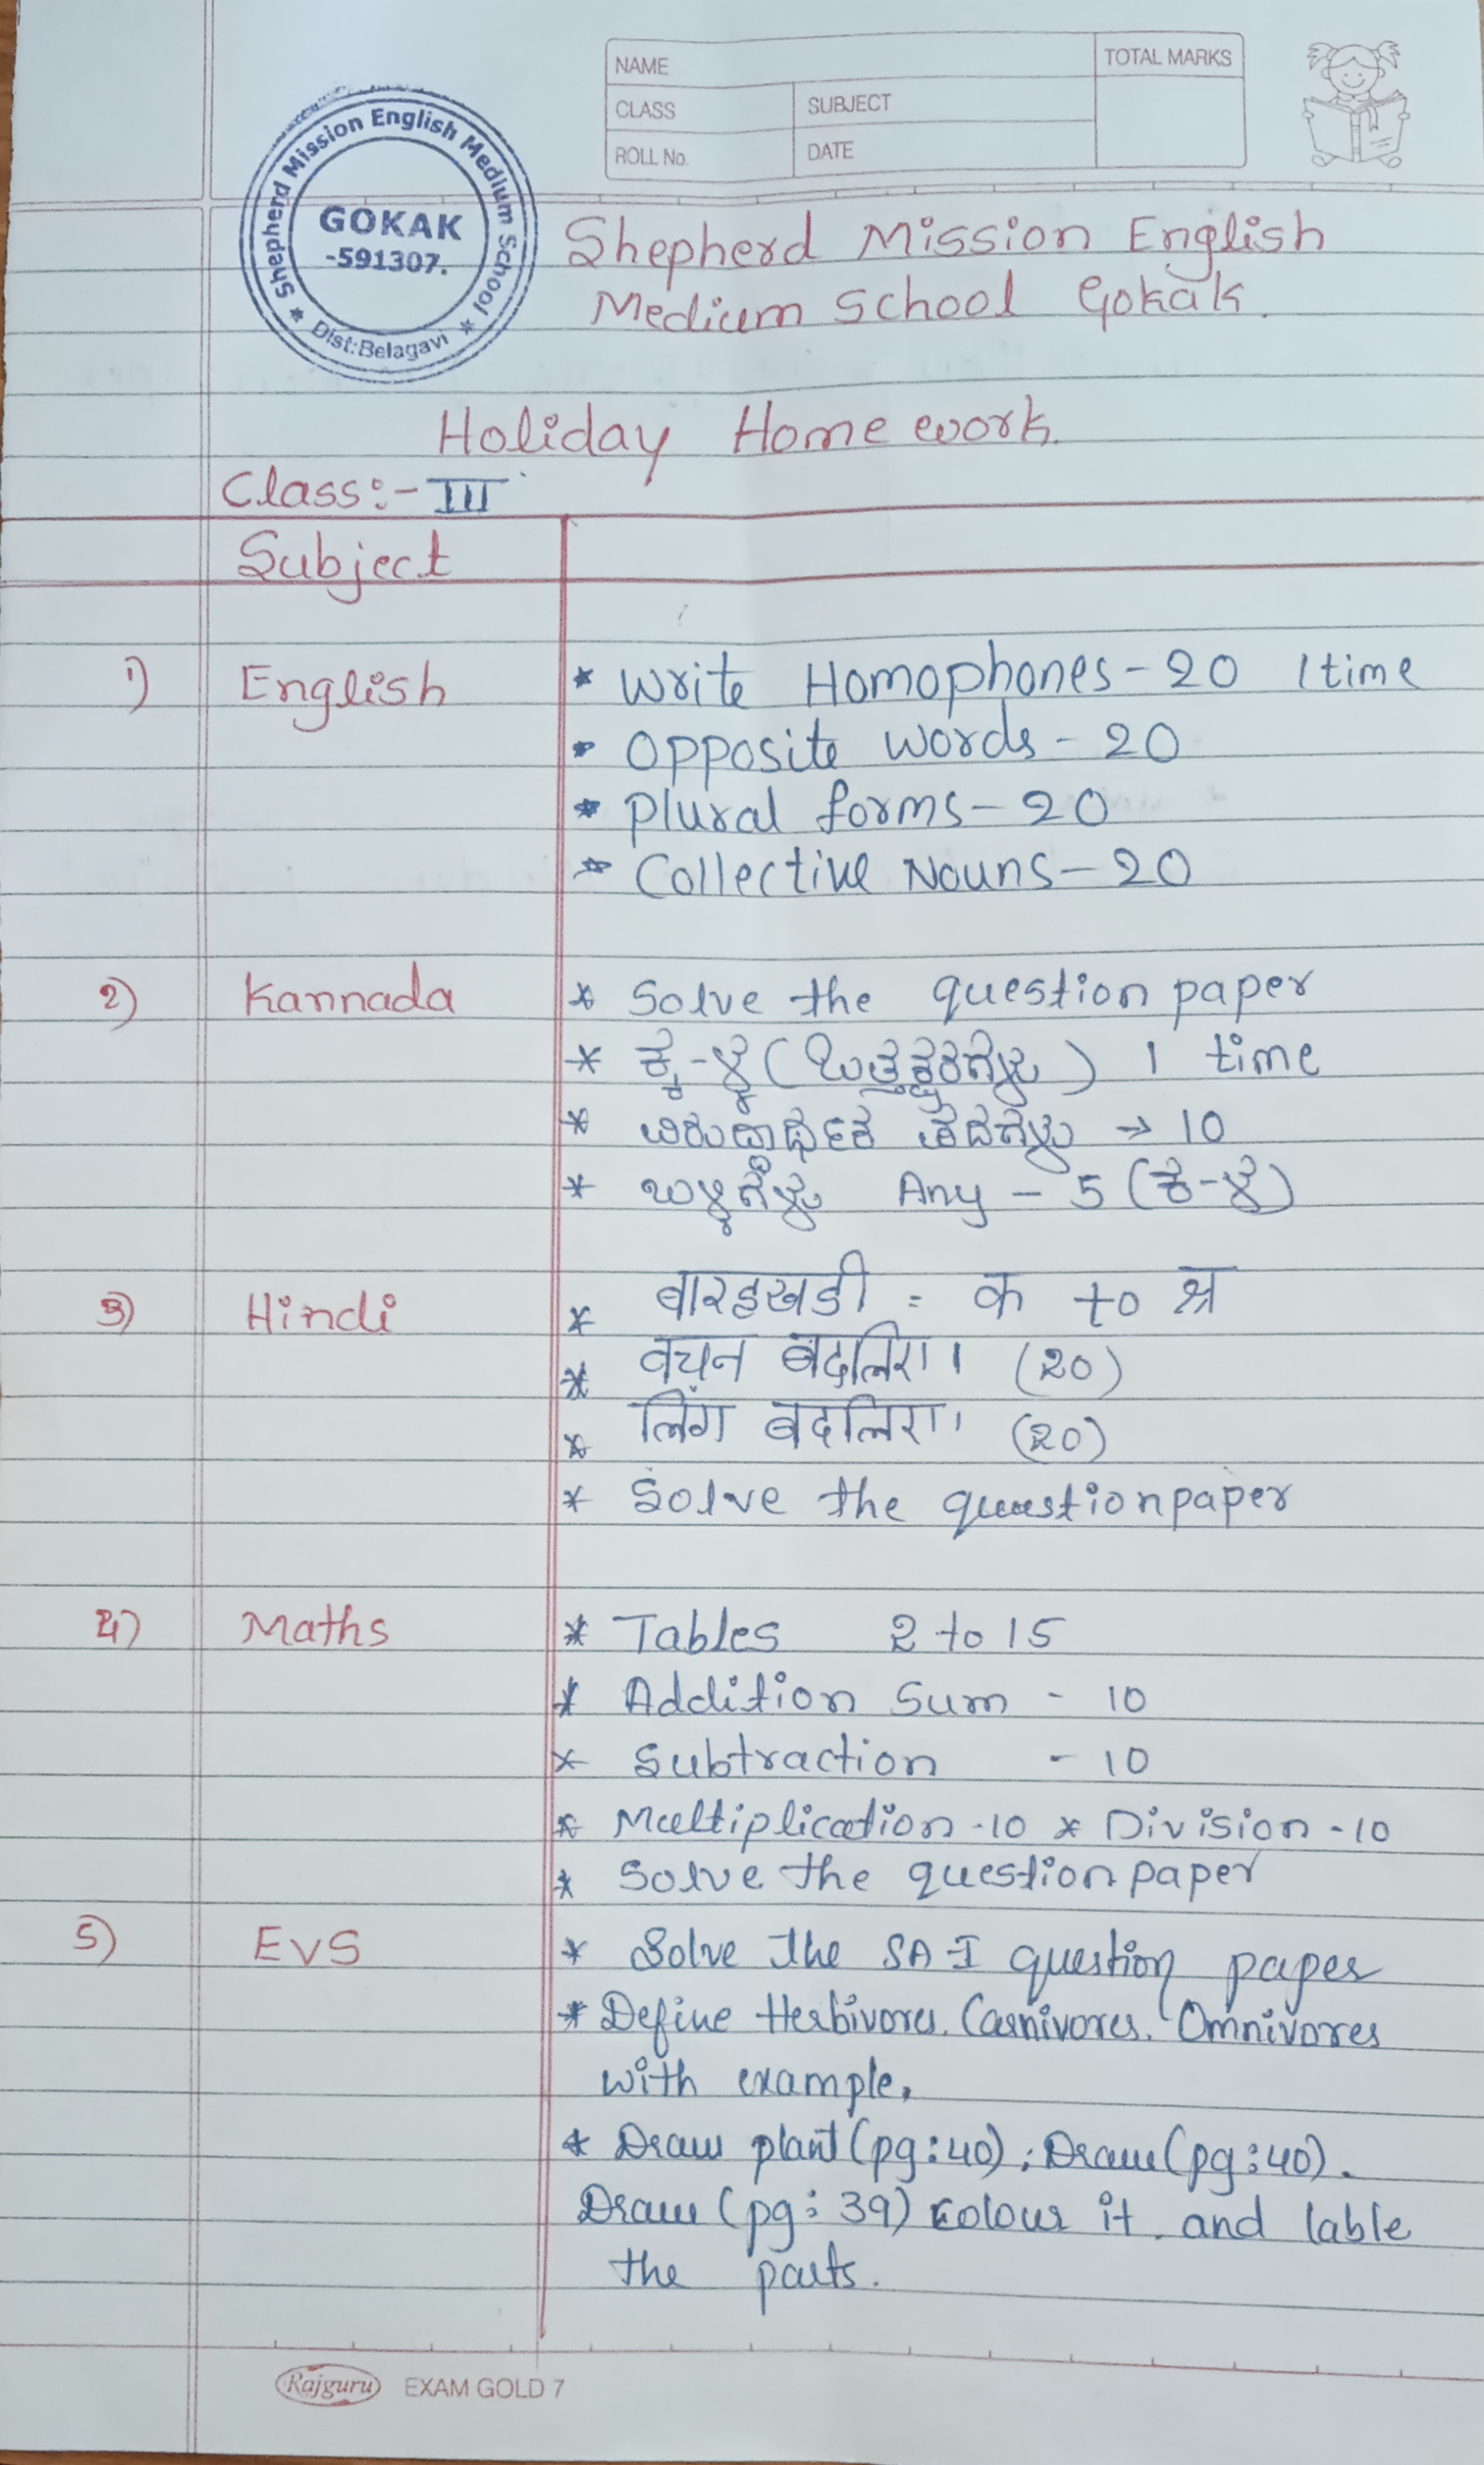 NAME
TOTAL MARKS
CLASS
SUBJECT
ROLL No.
DATE
Shepherd Mission English Medium School
GOKAK
-591307.
Dist:Belagavi
Shepherd Mission English
Medium School Gokak.
Holiday Home work.
Class:- III
Subject
1) English * Write Homophones - 20 1 time
* Opposite words - 20
* Plural forms - 20
* Collective Nouns - 20
2) Kannada * Solve the question paper
* ಕ್ಕ-ಳ್ಳ (ಒತ್ತಕ್ಷರಗಳು) 1 time
* ವಿರುದ್ಧಾರ್ಥಕ ಪದಗಳು → 10
* Any - 5 (ಕ-ಳ)
3) Hindi * बारहखडी = क to श्र
* वचन बदलिए। (20)
* लिंग बदलिए। (20)
* Solve the question paper
4) Maths * Tables 2 to 15
* Addition Sum - 10
* Subtraction - 10
* Multiplication - 10 * Division - 10
* Solve the question paper
5) EVS * Solve the SA-I question paper
* Define Herbivores. Carnivores. Omnivores
with example.
* Draw plant (pg:40); Draw (pg:40).
Draw (pg: 39) colour it. and lable
the parts.
Rajguru EXAM GOLD 7